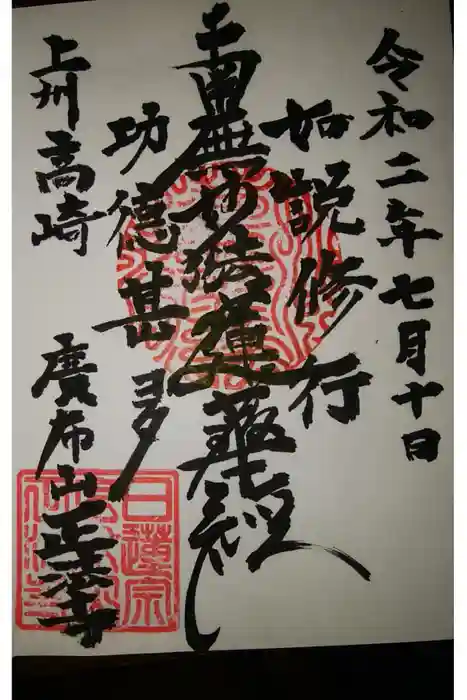 令和二年七月十日
如説修行
南無妙法蓮華経
功徳甚多
上州高崎
廣布山正法寺
日蓮宗